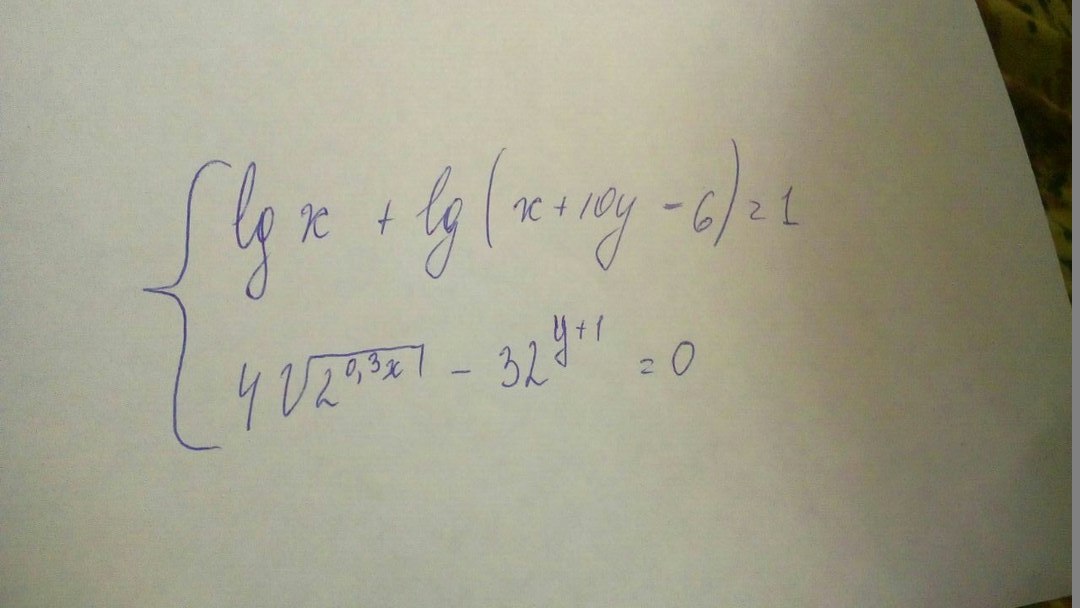 lg x + lg(x+10y-6)=1
4√2^0,3x - 32^y+1 = 0